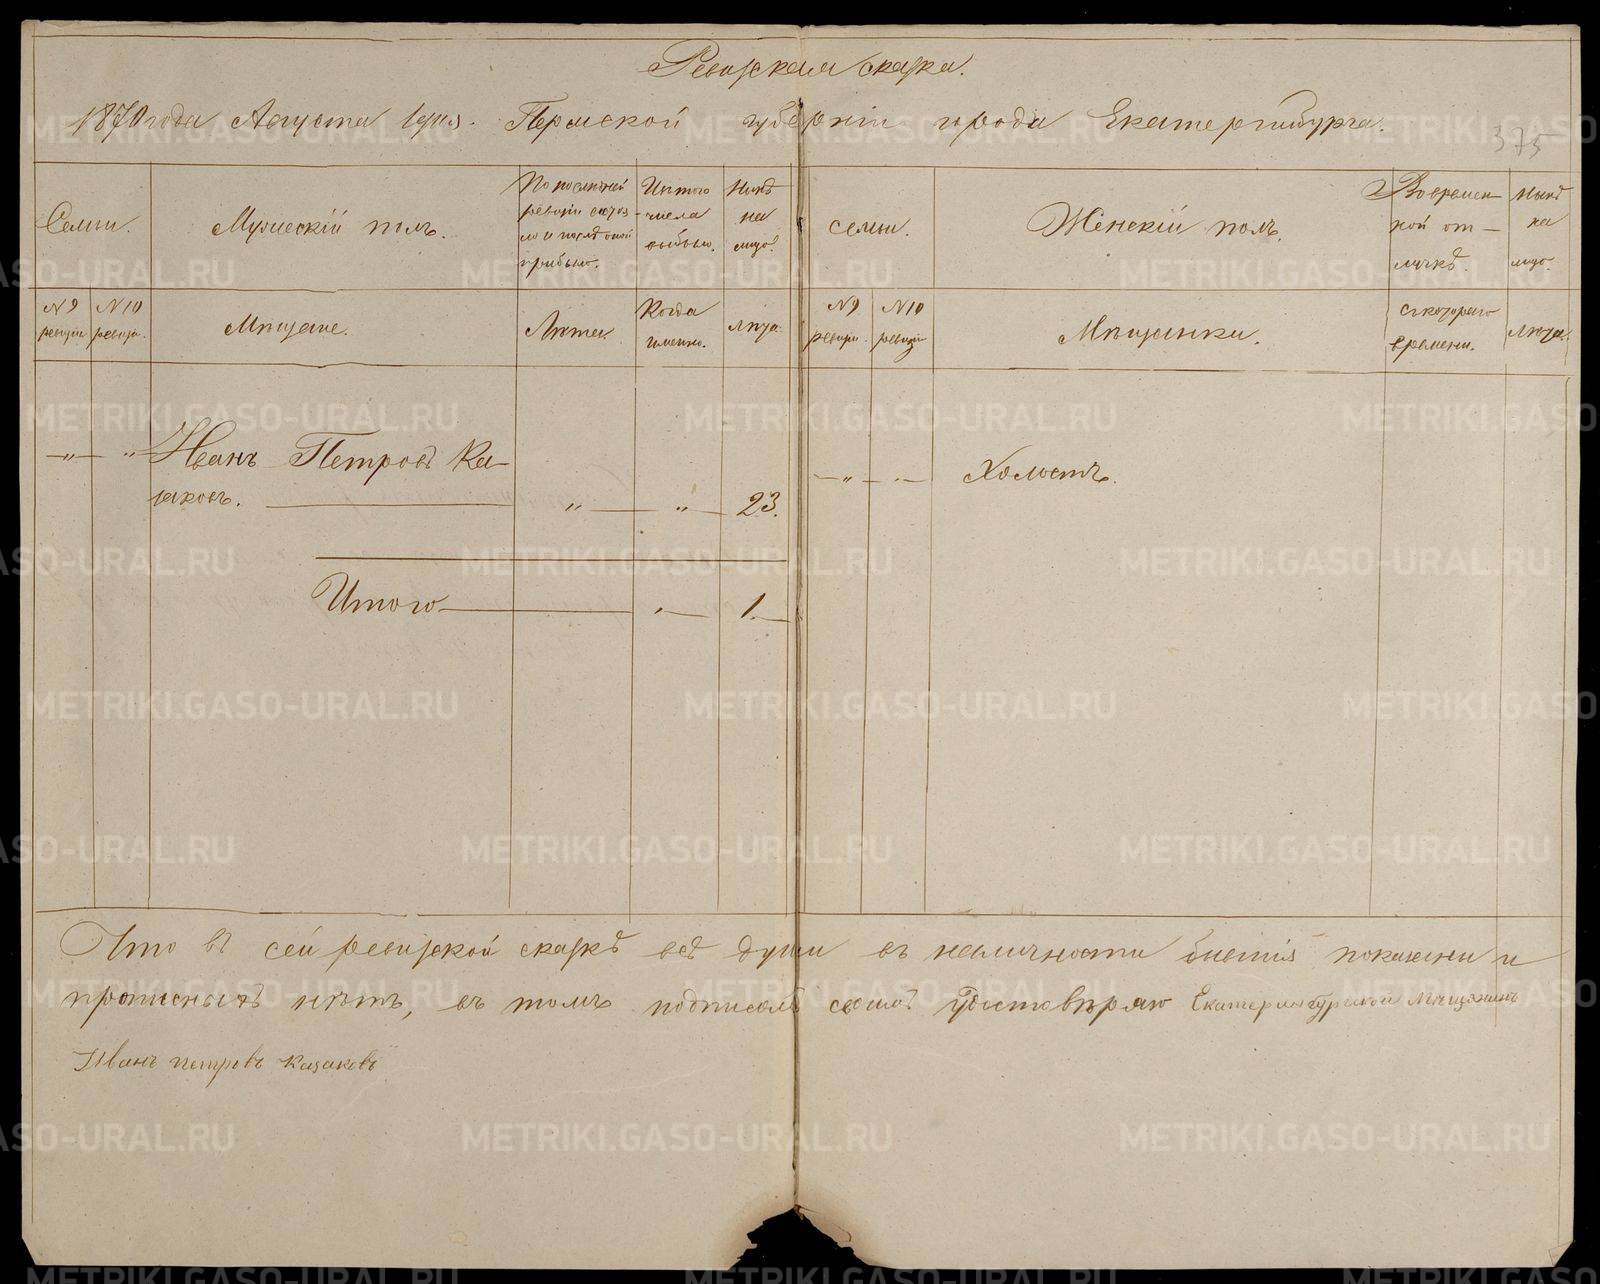 Ревизская сказка.
1870 года Августа дня. Пермской губерніи города Екатеринбурга.
375
Семьи.
Мужескій полъ.
По последней
ревизіи состоя
ло и после оной
прибыло.
Изъ того
числа
выбыло.
Нынѣ
на
лицо.
семьи.
Женскій полъ.
Во времен-
ной от-
лучкѣ.
Нынѣ
на
лицо.
№ 9
ревизіи
№ 10
ревизіи.
Мѣщане.
Лѣта.
Когда
именно.
лѣта.
№ 9
ревизіи.
№ 10
ревизіи
Мѣщанки.
съ котораго
времени.
лѣта.
— " — " Иванъ Петровъ Ка-
заковъ. " — " — 23.
— " — " — Холостъ.
Итого — " — 1.
Что въ сей ревизской сказкѣ всѣ души въ наличности показаны и
прописныхъ нѣтъ, въ томъ подписомъ своимъ удостовѣряю Екатеринбургской Мѣщанинъ
Иванъ петровъ Казаковъ
METRIKI.GASO-URAL.RU